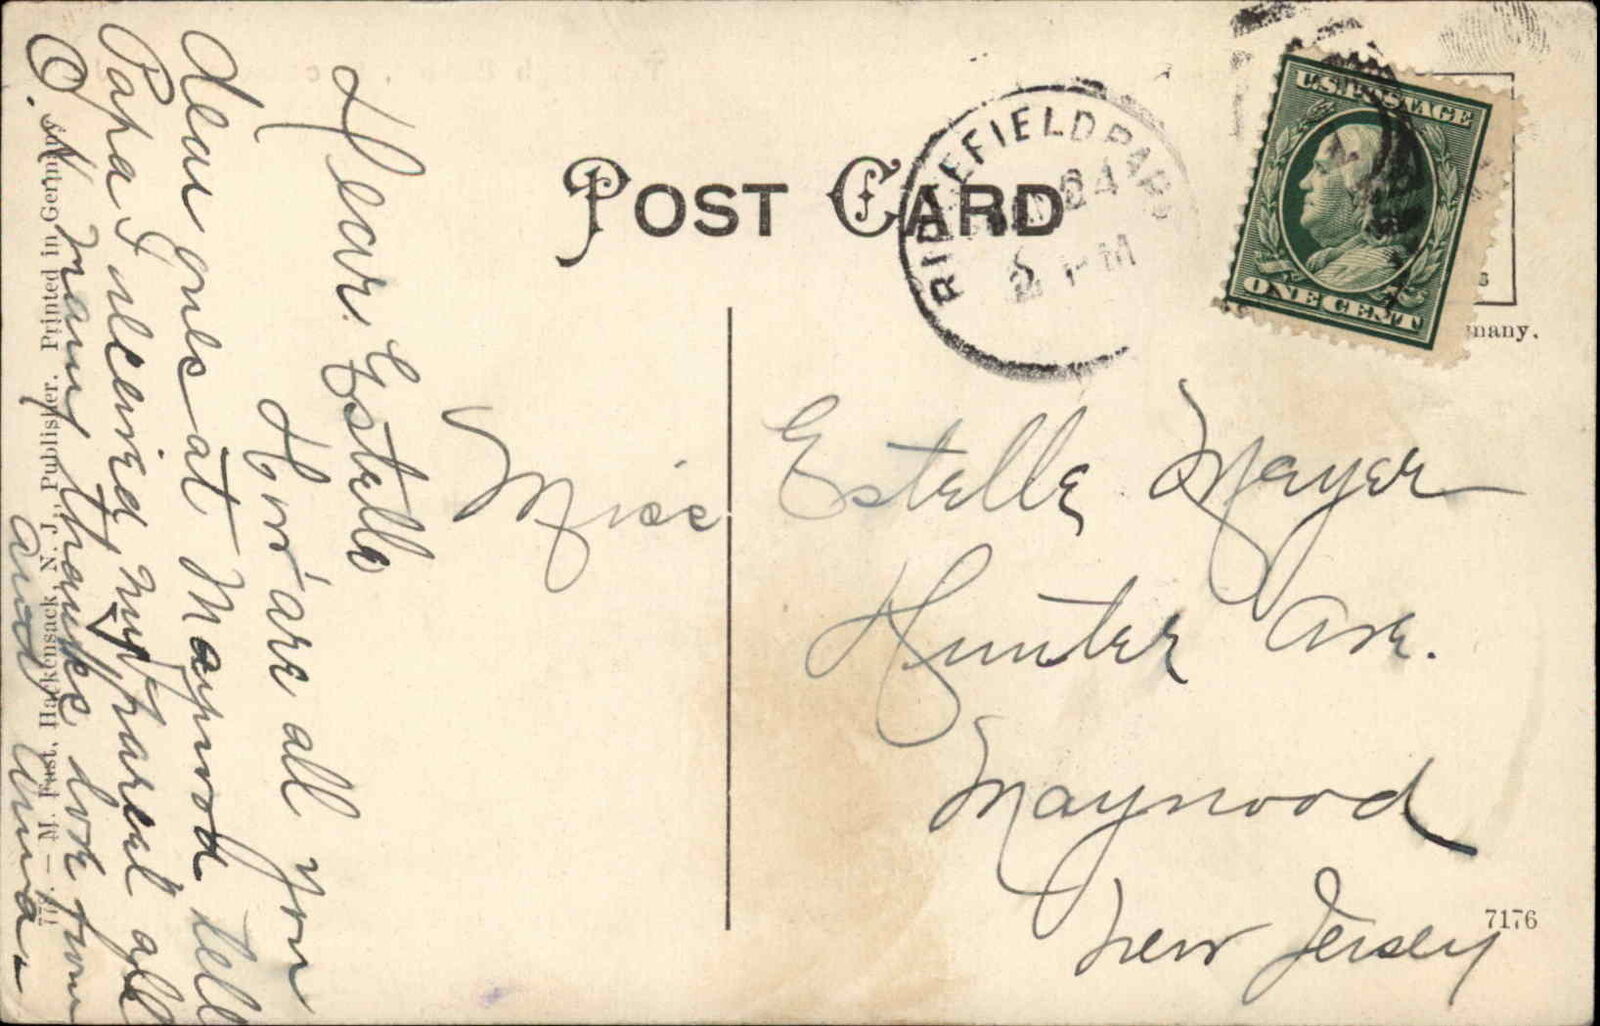 POST CARD
RIDGEFIELD PARK
24
PM
U.S. POSTAGE
ONE CENT
many.
Dear Estelle
How are all you
dear ones at Maywood tell
Papa I received my parcel all
O.K. many thanks love from
and Anna
Miss Estelle Mayer
Hunter Ave.
Maywood
New Jersey
M. Fust, Hackensack, N. J., Publisher. Printed in Germany
7176